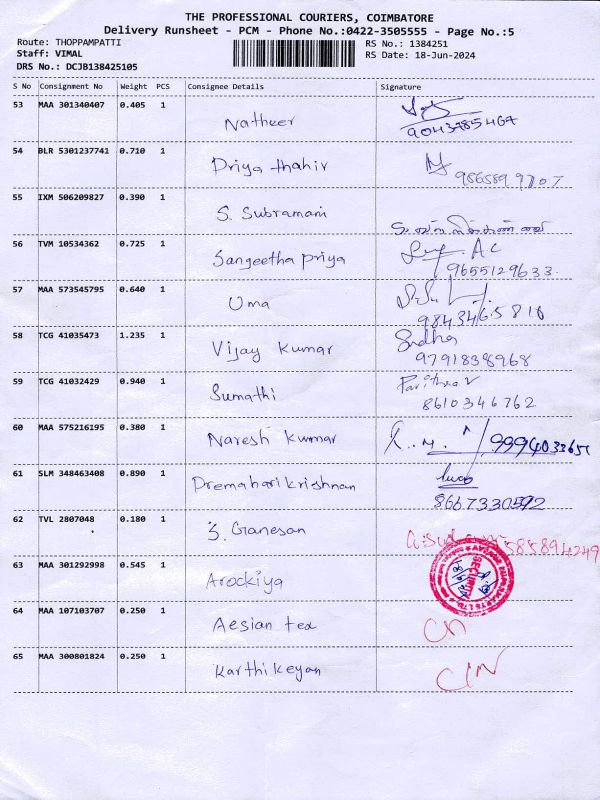 THE PROFESSIONAL COURIERS, COIMBATORE
Delivery Runsheet - PCM - Phone No.:0422-3505555 - Page No.:5
Route: THOPPAMPATTI RS No.: 1384251
Staff: VIMAL RS Date: 18-Jun-2024
DRS No.: DCJB138425105
S No Consignment No Weight PCS Consignee Details Signature
53 MAA 301340407 0.405 1
Natheer 9043785467
54 BLR 5301237741 0.710 1
Priya thahir
55 IXM 506209827 0.390 1
S. Subramani
56 TVM 10534362 0.725 1
Sangeetha priya 9655129633
57 MAA 573545795 0.640 1
Uma 9843465810
58 TCG 41035473 1.235 1 Sudha
Vijay Kumar 9791838968
59 TCG 41032429 0.940 1
Sumathi 8610346762
60 MAA 575216195 0.380 1
Naresh Kumar
61 SLM 348463408 0.890 1
Premaharikrishnan 8667330592
62 TVL 2807048 0.180 1
S. Ganesan
63 MAA 301292998 0.545 1 SECURITY
Arockiya
64 MAA 107103707 0.250 1
Aesian tex
65 MAA 300801824 0.250 1
Karthikeyan